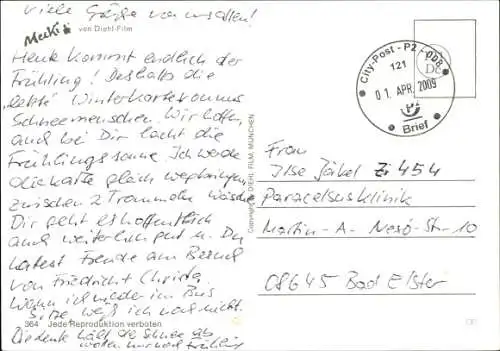 Viele Grüße von uns allen!
Mecki von Diehl-Film
Heute kommt endlich der
Frühling! Deshalb die
"letzte" Winterkarte von uns
Schneemenschen. Wir hoffen,
auch bei Dir lacht die
Frühlingssonne. Ich werde
die Karte gleich wegbringen,
zwischen 2 Trommeln Wäsche
Dir geht es hoffentlich
auch weiterhin gut u. Du
hattest Freude am Besuch
von Friedrich Christa.
Wann ich wieder im Bus
sitze weiß ich noch nicht.
364 Jede Reproduktion verboten
Die denke hält die Schnee ab
wollen nur noch Frühling
Copyright by DIEHL FILM, MÜNCHEN
City-Post - P2 - 008
121
01. APR. 2009
P2
Brief
Frau
Ilse Jäkel Zi 454
Paracelsusklinik
Martin-A.-Nexö-Str. 10
08645 Bad Elster